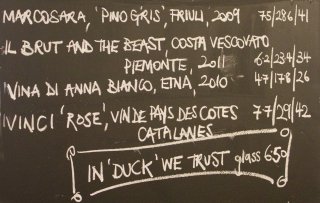 MARCO SARA, 'PINO GRIS', FRIULI, 2009 75/286/41
IL BRUT AND THE BEAST, COSTA VESCOVATO
PIEMONTE, 2011 62/234/34
'VINA DI ANNA BIANCO, ETNA, 2010 47/178/26
VINCI 'ROSE', VIN DE PAYS DES COTES 77/29/42
CATALANES
IN 'DUCK' WE TRUST glass 6.50